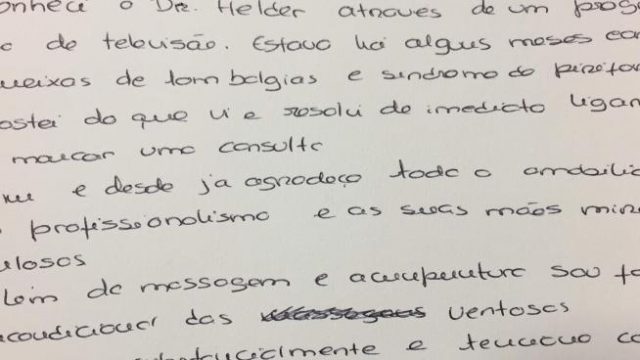 onheci o Dr. Helder atraves de um prog
o de televisão. Estava há algus meses com
ueixas de lombalgias e sindrome do piriform
ostei do que vi e resolvi de imediato ligar
marcar uma consulta
e desde já agradeço toda o amabilid
profissionalismo e as suas mãos mira
ulosas
lém da massagem e acupuntura sou fã
condicional das ventosas
substancialmente e